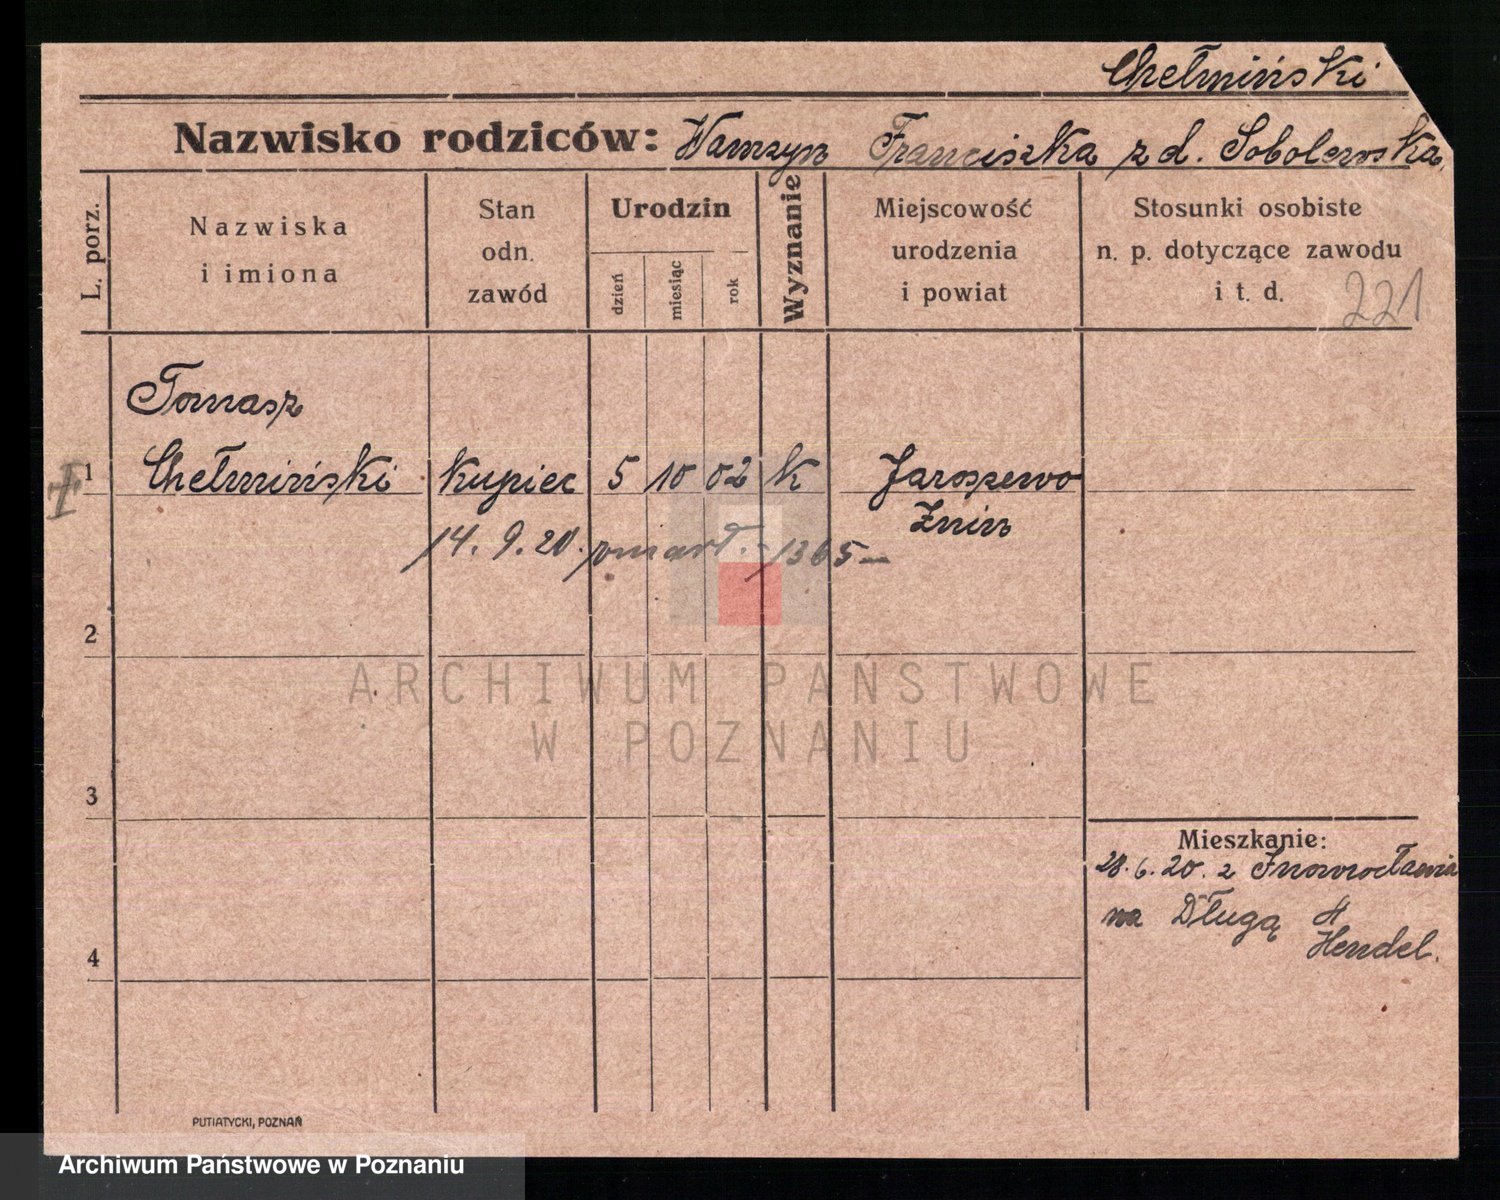 Chełmiński
Nazwisko rodziców: Wawrzyn Franciszka z d. Sobolewska
L. porz.
Nazwiska
i imiona
Stan
odn.
zawód
Urodzin
dzień
miesiąc
rok
Wyznanie
Miejscowość
urodzenia
i powiat
Stosunki osobiste
n. p. dotyczące zawodu
i t. d.
221
Tomasz
1 Chełmiński kupiec 5 10 02 k Jaroszewo
Żnin
14. 9. 20. zmarł. - 1365 -
2
ARCHIWUM PAŃSTWOWE
W POZNANIU
3
Mieszkanie:
28.6.20. z Inowrocławia
na Długą 4
Hendel.
4
PUTIATYCKI, POZNAŃ
Archiwum Państwowe w Poznaniu